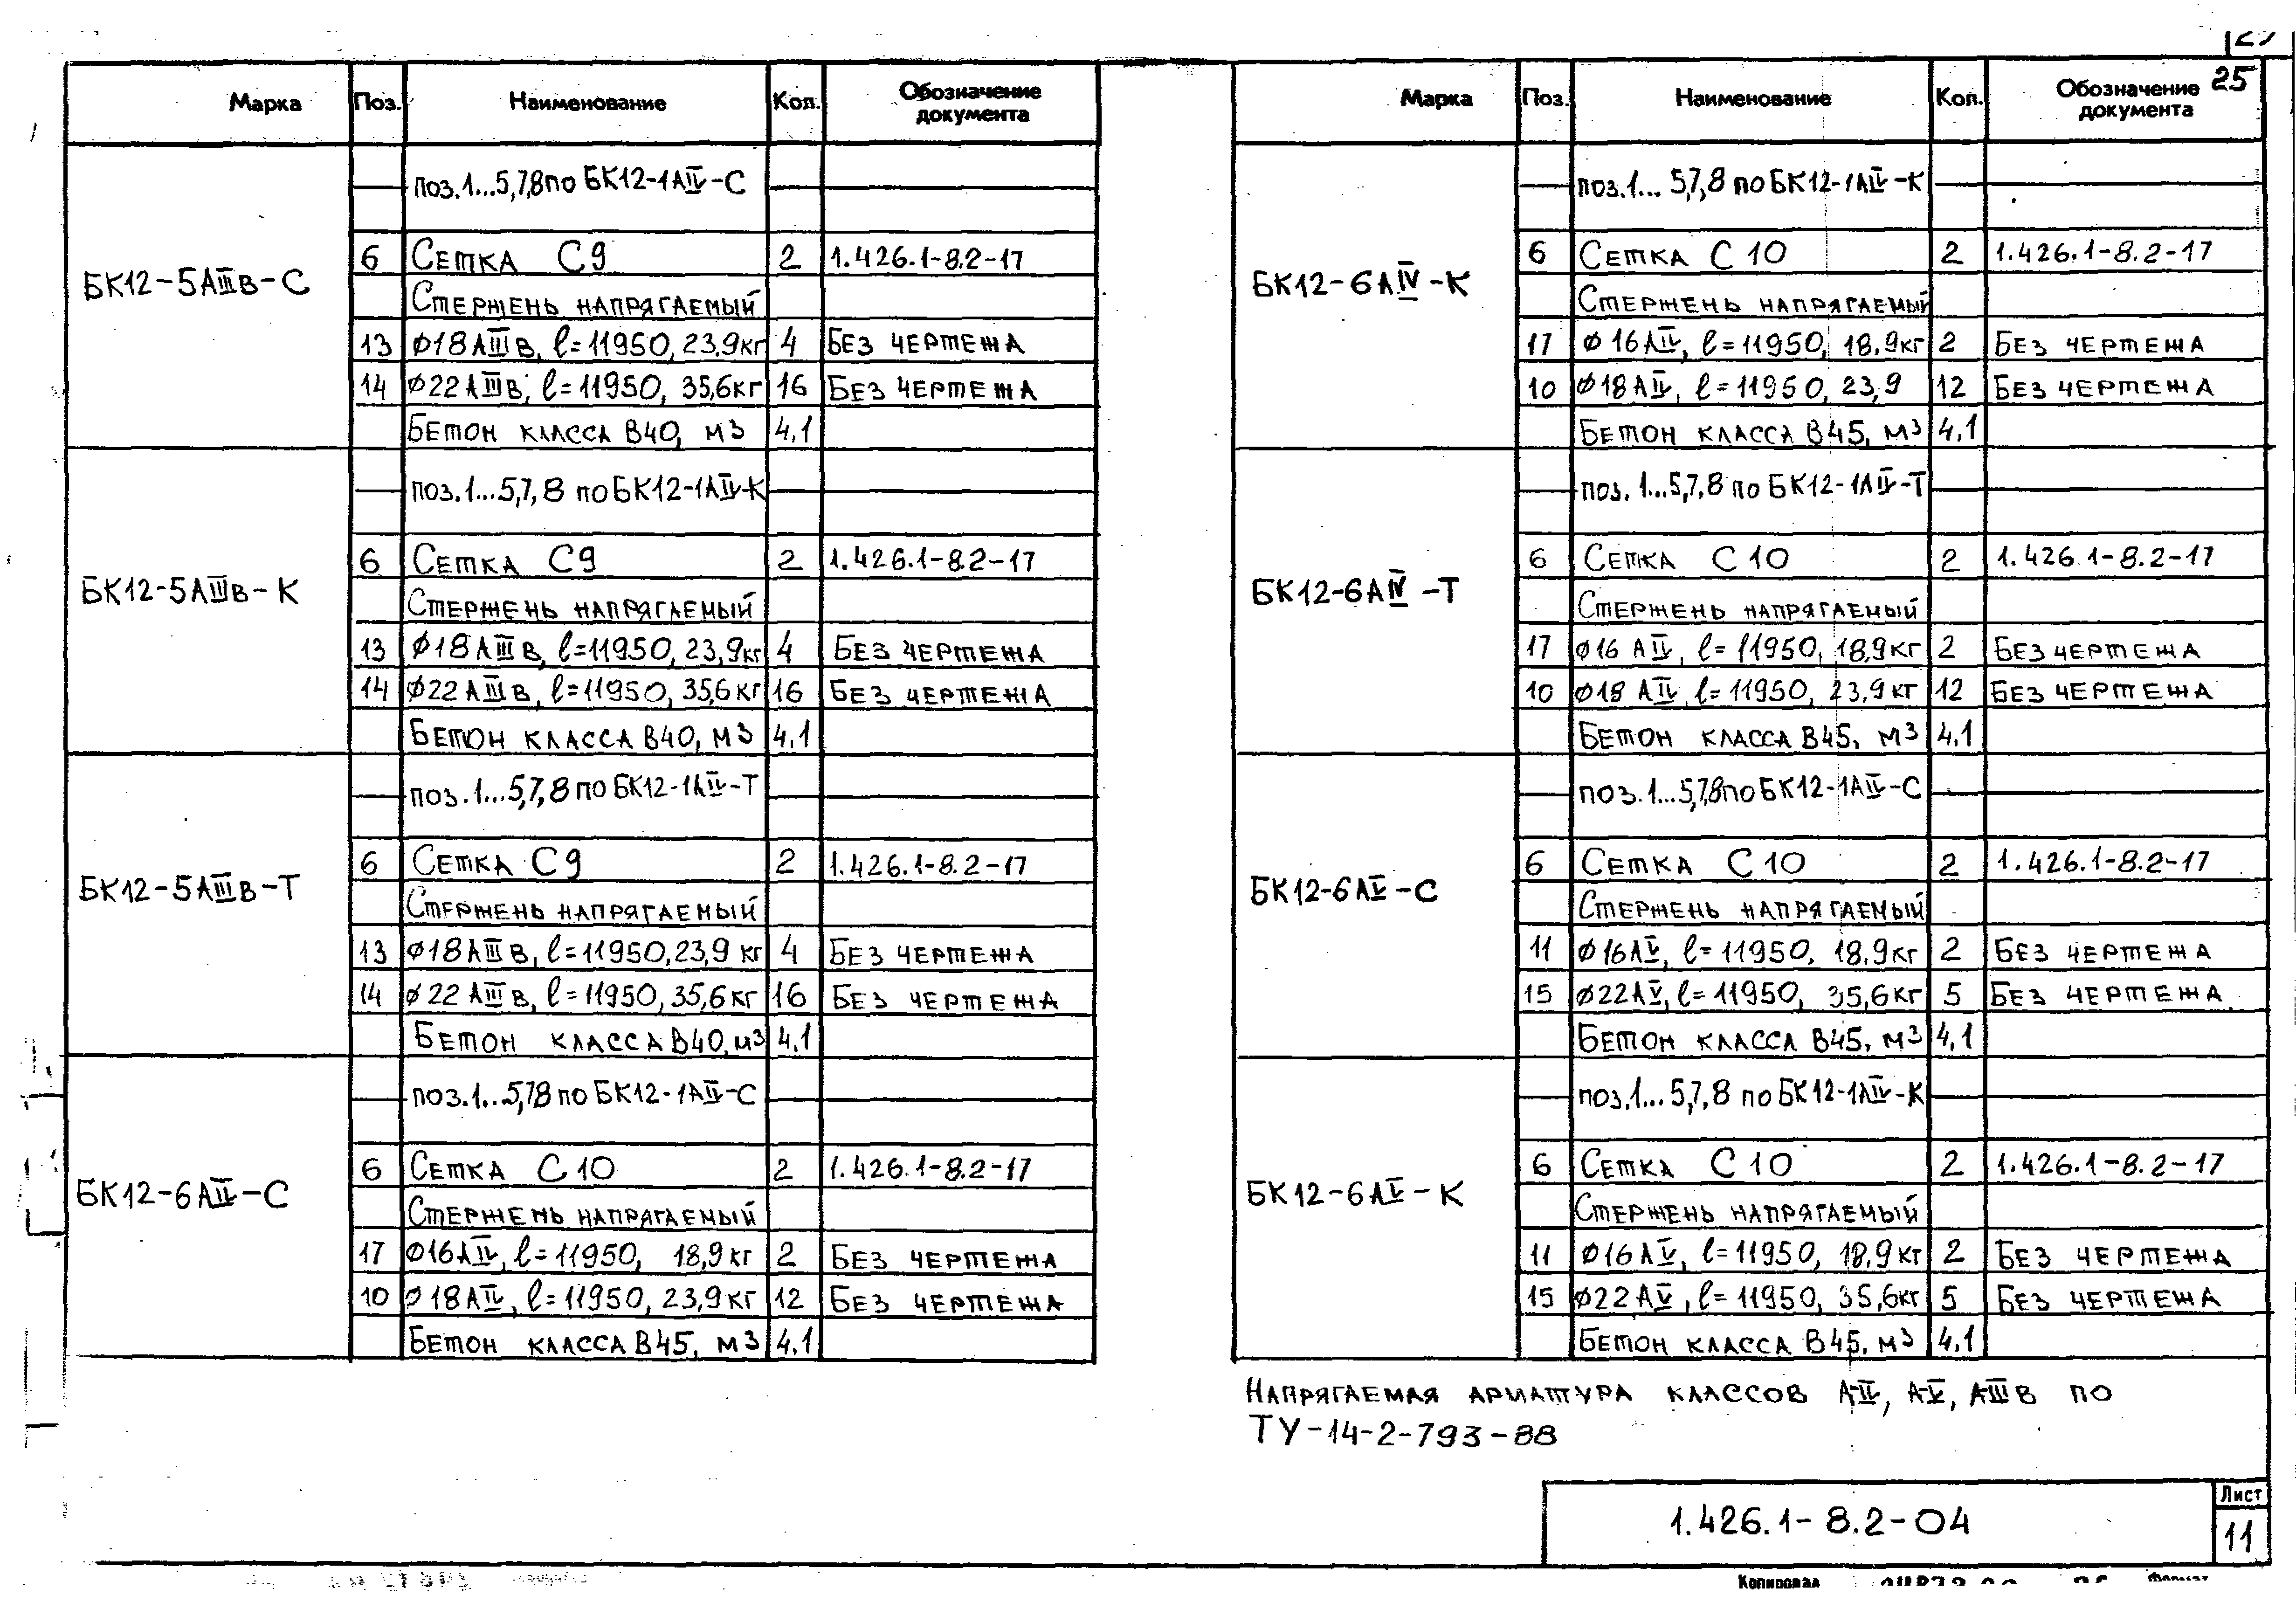 25
Марка Поз. Наименование Кол. Обозначение документа
поз.1...5,7,8 по БК12-1АIV-С
БК12-5АIIIв-С
6 Сетка С9 2 1.426.1-8.2-17
Стержень напрягаемый
13 ϕ18АIIIв, l=11950, 23,9кг 4 Без чертежа
14 ϕ22АIIIв, l=11950, 35,6кг 16 Без чертежа
Бетон класса В40, м3 4,1
поз.1...5,7,8 по БК12-1АIV-К
БК12-5АIIIв-К
6 Сетка С9 2 1.426.1-8.2-17
Стержень напрягаемый
13 ϕ18АIIIв, l=11950, 23,9кг 4 Без чертежа
14 ϕ22АIIIв, l=11950, 35,6кг 16 Без чертежа
Бетон класса В40, м3 4,1
поз.1...5,7,8 по БК12-1АIV-Т
БК12-5АIIIв-Т
6 Сетка С9 2 1.426.1-8.2-17
Стержень напрягаемый
13 ϕ18АIIIв, l=11950, 23,9 кг 4 Без чертежа
14 ϕ22АIIIв, l=11950, 35,6кг 16 Без чертежа
Бетон класса В40, м3 4,1
поз.1...5,7,8 по БК12-1АIV-С
БК12-6АIV-С
6 Сетка С10 2 1.426.1-8.2-17
Стержень напрягаемый
17 ϕ16АIV, l=11950, 18,9кг 2 Без чертежа
10 ϕ18АIV, l=11950, 23,9кг 12 Без чертежа
Бетон класса В45, м3 4,1
Марка Поз. Наименование Кол. Обозначение документа
поз.1...5,7,8 по БК12-1АIV-К
БК12-6АIV-К
6 Сетка С10 2 1.426.1-8.2-17
Стержень напрягаемый
17 ϕ16АIV, l=11950, 18,9кг 2 Без чертежа
10 ϕ18АIV, l=11950, 23,9 12 Без чертежа
Бетон класса В45, м3 4,1
поз.1...5,7,8 по БК12-1АIV-Т
БК12-6АIV-Т
6 Сетка С10 2 1.426.1-8.2-17
Стержень напрягаемый
17 ϕ16 АIV, l=11950, 18,9кг 2 Без чертежа
10 ϕ18 АIV, l=11950, 23,9кг 12 Без чертежа
Бетон класса В45, м3 4,1
поз.1...5,7,8 по БК12-1АIV-С
БК12-6АV-С
6 Сетка С10 2 1.426.1-8.2-17
Стержень напрягаемый
11 ϕ16АV, l=11950, 18,9кг 2 Без чертежа
15 ϕ22АV, l=11950, 35,6кг 5 Без чертежа
Бетон класса В45, м3 4,1
поз.1...5,7,8 по БК12-1АIV-К
БК12-6АV-К
6 Сетка С10 2 1.426.1-8.2-17
Стержень напрягаемый
11 ϕ16АV, l=11950, 18,9кг 2 Без чертежа
15 ϕ22АV, l=11950, 35,6кг 5 Без чертежа
Бетон класса В45, м3 4,1
Напрягаемая арматура классов АIV, АV, АIIIв по
ТУ-14-2-793-88
1.426.1-8.2-04
Лист
11
Копировал